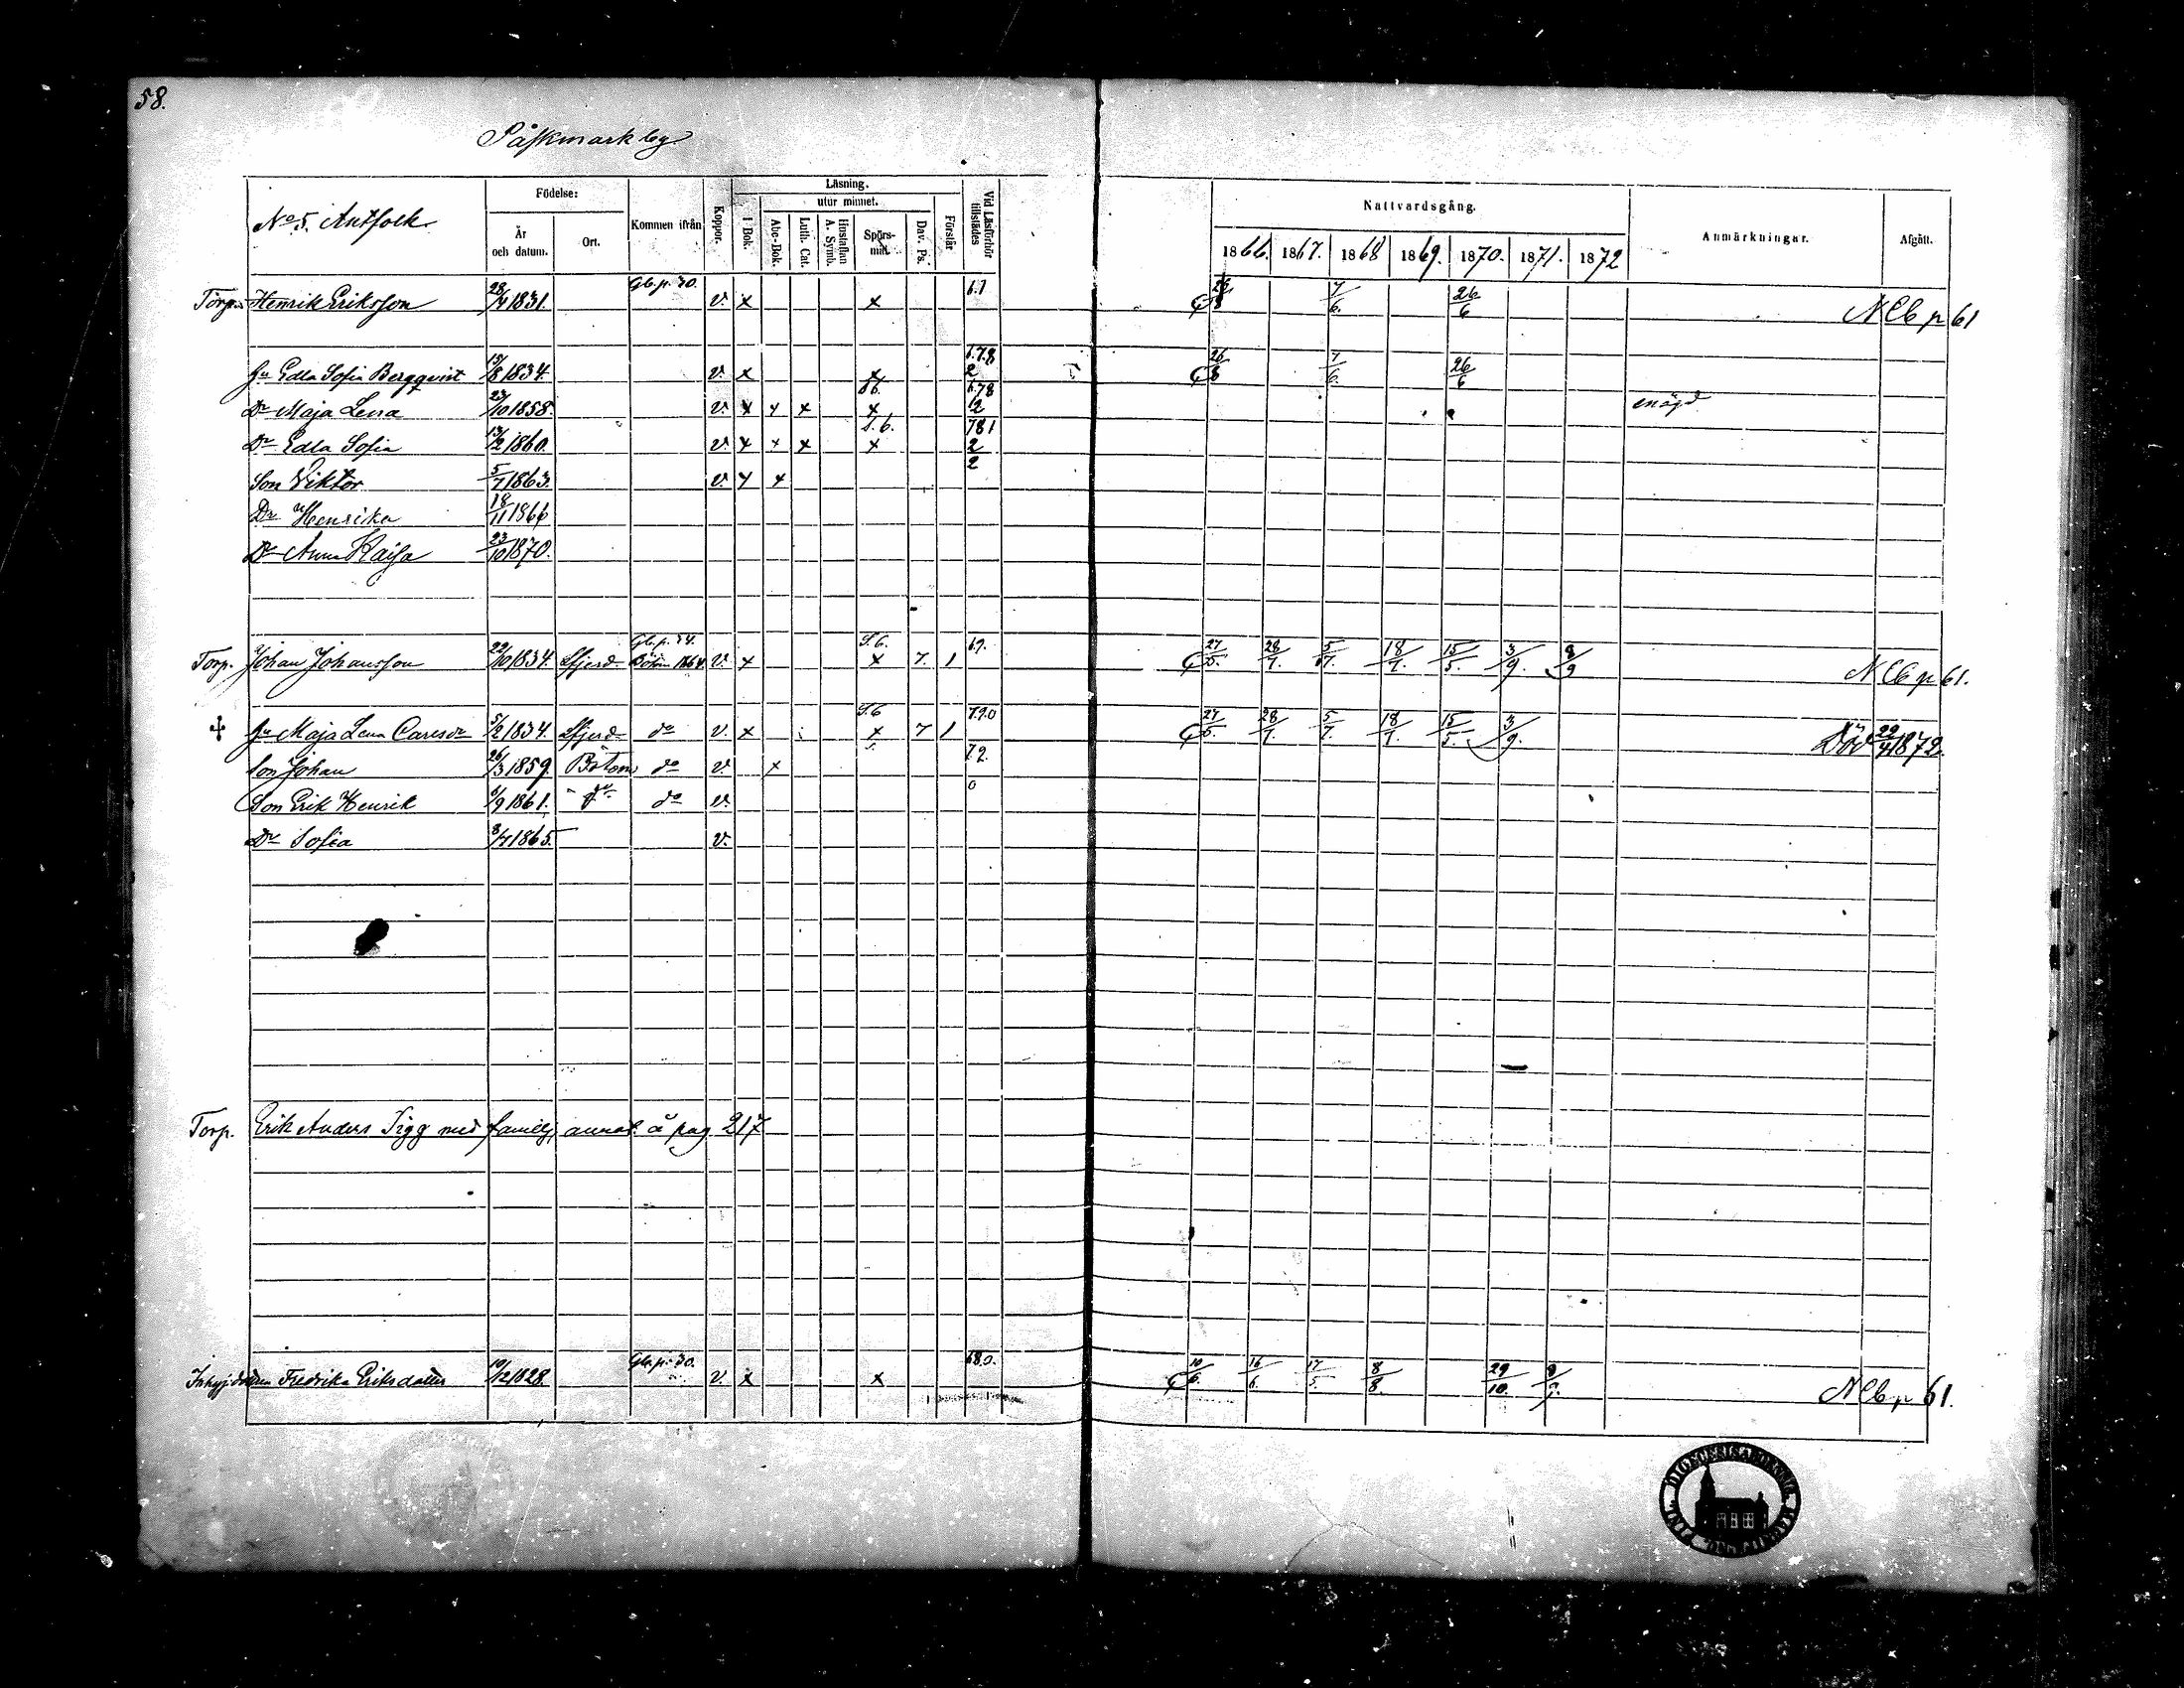 58.
Påskmark by
No 5. Antfolk.
Födelse:
År och datum.
Ort.
Kommen ifrån
Koppor.
Läsning.
utur minnet.
I Bok.
Abc-Bok.
Luth. Cat.
Hustaflan A. Symb.
Spörs-mål.
Dav. Ps.
Förstår
Vid Läsförhör tillstädes
Nattvardsgång.
1866. 1867. 1868 1869. 1870. 1871. 1872
Anmärkningar.
Afgått.
Torp. Henrik Eriksson 28/4 1831. Gb. p. 30. v. x x 6.7 7/6. 26/6 N Cb p 61
Hu Edla Sofia Bergqvist 15/8 1834. v. x x 6.7.8 2 26/8 7/6. 26/6
Dr Maja Lena 23/10 1858. v. x x x x 6.78 12
Dr Edla Sofia 13/2 1860. v. x x x S.6. x 781 2
Son Viktor 5/7 1863. v. x x 2
Dr Henrika 18/11 1866
Dr Anna Kaisa 23/10 1870.
Torp. Johan Johansson 22/10 1834. Sfjerd Gb. p. 34. Bötom 1864 v. x S.6. x 7. 1 6.9. 27/5. 28/7. 5/7. 18/7. 15/5. 3/9. 8/9 N Cb p 61.
Hu Maja Lena Carlsdr 5/2 1834. Sfjerd do v. x S.6 x 7 1 7.9.0 27/5. 28/7. 5/7. 18/7. 15/5. 3/9. Död 22/4 1872.
Son Johan 26/3 1859. Bötom do v. x 7.2.
Son Erik Henrik 6/9 1861. do do v. 0
Dr Sofia 8/7 1865. v.
Torp. Erik Anders Sigg med familj, annot. å pag 217
Fredrika Eriksdotter 10/12 1828. Gb. p. 30. v. x x 680. 10/6. 16/6. 17/5. 8/8 29/10. N Cb p 61.